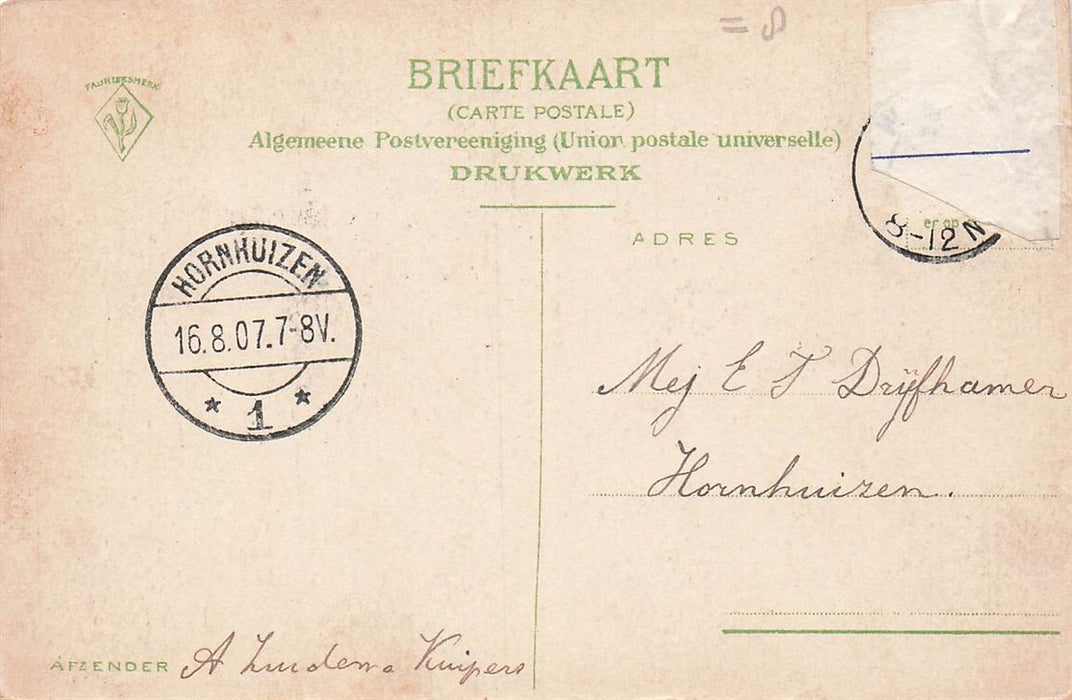 = 8
FABRIEKSMERK
BRIEFKAART
(CARTE POSTALE)
Algemeene Postvereeniging (Union postale universelle)
DRUKWERK
er op
8-12 N
ADRES
HORNHUIZEN
16.8.07.7-8V.
* 1 *
Mej E T Drijfhamer
Hornhuizen.
AFZENDER A Zuidema Kuipers